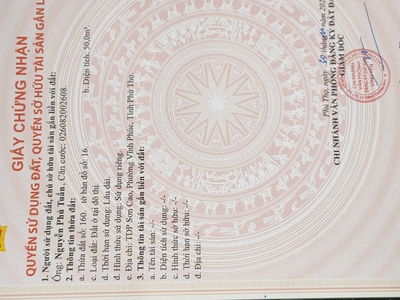 GIẤY CHỨNG NHẬN
QUYỀN SỬ DỤNG ĐẤT, QUYỀN SỞ HỮU TÀI SẢN GẮN L
1. Người sử dụng đất, chủ sở hữu tài sản gắn liền với đất:
Ông: Nguyễn Phú Tuân, Căn cước: 026082002608.
2. Thông tin thửa đất:
a. Thửa đất số: 160. tờ bản đồ số: 16. b. Diện tích: 50,0m².
c. Loại đất: Đất ở tại đô thị.
d. Thời hạn sử dụng: Lâu dài.
đ. Hình thức sử dụng: Sử dụng riêng.
e. Địa chỉ: TDP. Sơn Cao, Phường Vĩnh Phúc, Tỉnh Phú Thọ.
3. Thông tin tài sản gắn liền với đất:
a. Tên tài sản: -/-
b. Diện tích sử dụng: -/-
c. Hình thức sở hữu: -/-
d. Thời hạn sở hữu: -/-
đ. Địa chỉ: -/-
Phú Thọ, ngày tháng năm 202
CHI NHÁNH VĂN PHÒNG ĐĂNG KÝ ĐẤT ĐA
GIÁM ĐỐC